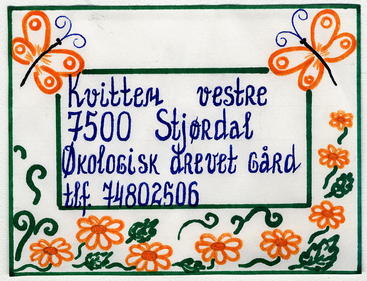 Kvittem vestre
7500 Stjørdal
Økologisk drevet gård
tlf 74802506